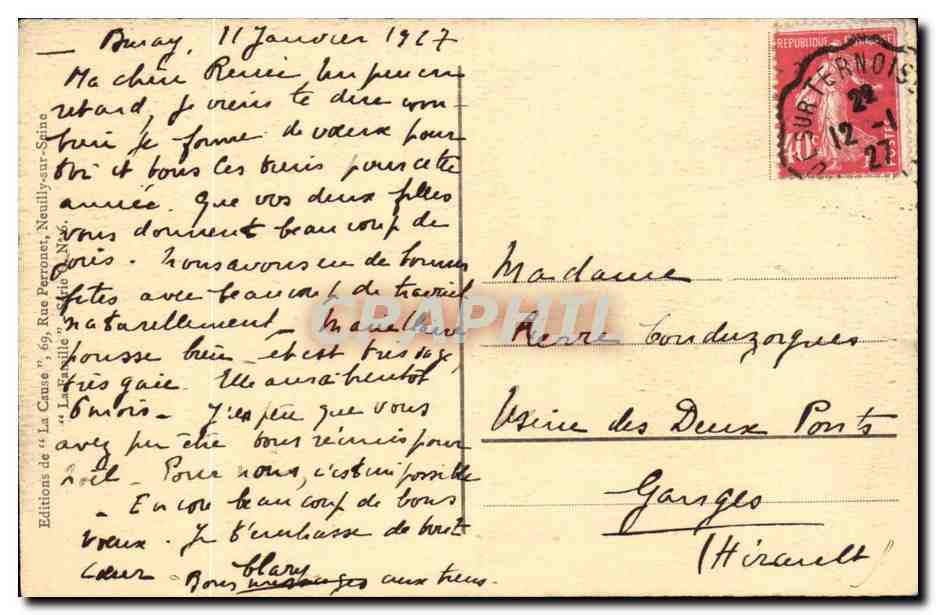 11 Janvier 1927
Ma chère Renée Un peu en
retard, je viens te dire com-
bien je forme de vœux pour
toi et tous les tiens pour cette
année. Que vos deux filles
vous donnent beaucoup de
joies. Nous avons eu de bonnes
fêtes avec beaucoup de travail
naturellement - Marie Claire
pousse bien et est très sage,
très gaie. Elle aura bientôt
6 mois - J'espère que vous
avez pu être tous réunis pour
Noël - Pour nous, c'est impossible
- Encore beaucoup de bons
vœux. Je t'embrasse de tout
cœur Bons aux tiens.
Editions de "La Cause", 69, Rue Perronet, Neuilly-sur-Seine
"La Famille" Série VI, N° 6.
REPUBLIQUE FRANÇAISE
SUR TERNOISE
22
12 -1
27
Madame
Pierre Couduzorgues
Usine des Deux Ponts
Ganges
(Hérault)
DELCAMPHIL